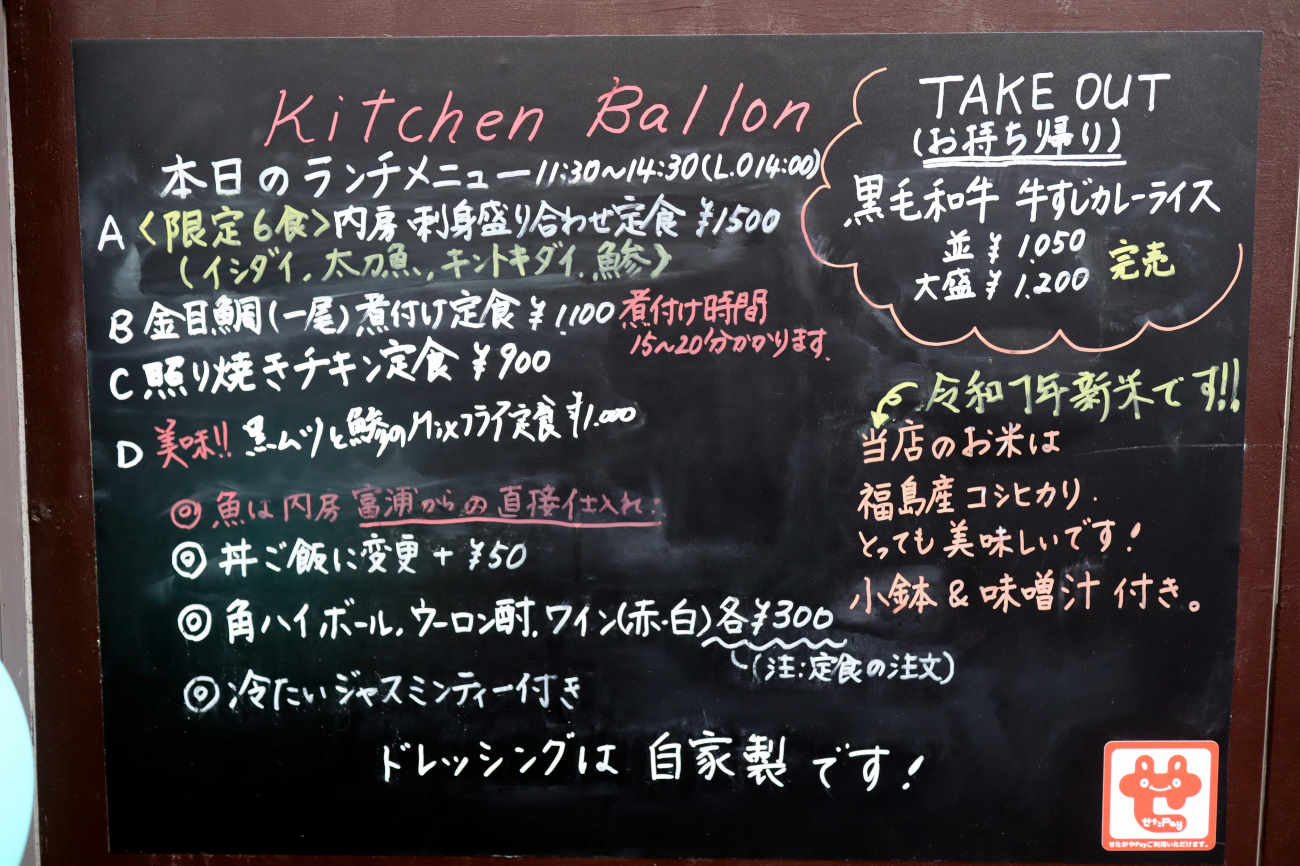 Kitchen Ballon
本日のランチメニュー 11:30〜14:30(L.O 14:00)
A 〈限定6食〉内房 刺身盛り合わせ定食 ¥1500
(イシダイ,太刀魚,キントキダイ.鯵〉
B 金目鯛(一尾)煮付け定食 ¥1,100 煮付け時間
15〜20分かかります.
C 照り焼きチキン定食 ¥900
D 美味!! 黒ムツと鯵のMixフライ定食 ¥1.000
◎ 魚は内房 富浦からの直接仕入れ.
◎ 丼ご飯に変更 + ¥50
◎ 角ハイボール.ウーロン酎.ワイン(赤・白)各¥300
(注:定食の注文)
◎ 冷たいジャスミンティー付き
ドレッシングは 自家製です!
TAKE OUT
(お持ち帰り)
黒毛和牛 牛すじカレーライス
並 ¥ 1.050
大盛 ¥ 1.200
完売
令和7年新米です!!
当店のお米は
福島産コシヒカリ.
とっても美味しいです!
小鉢 & 味噌汁 付き。
せたPay
せたがやPayご利用いただけます。